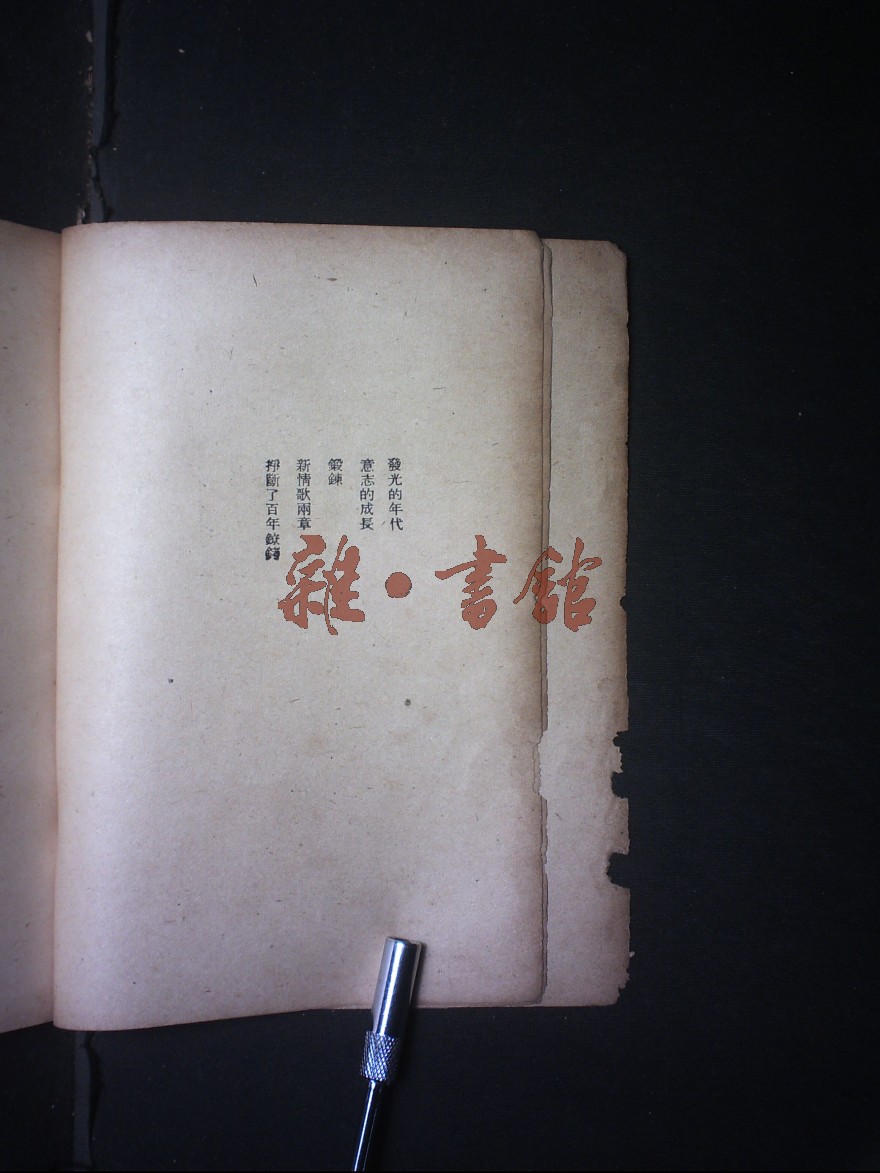 發光的年代
意志的成長
鍛鍊
新情歌兩章
掙斷了百年鐐銬
雜·書館